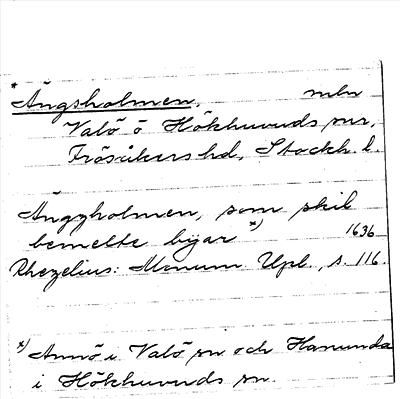 * Ängsholmen. mln
Valö o Hökhuvuds snr,
Frösåkers hd, Stockh. l.
Ängzholmen, som skil
bemelte byar x) 1636
Rhezelius: Monum. Upl., s. 116.
x) Annö i Valö sn och Hanunda
i Hökhuvuds sn.